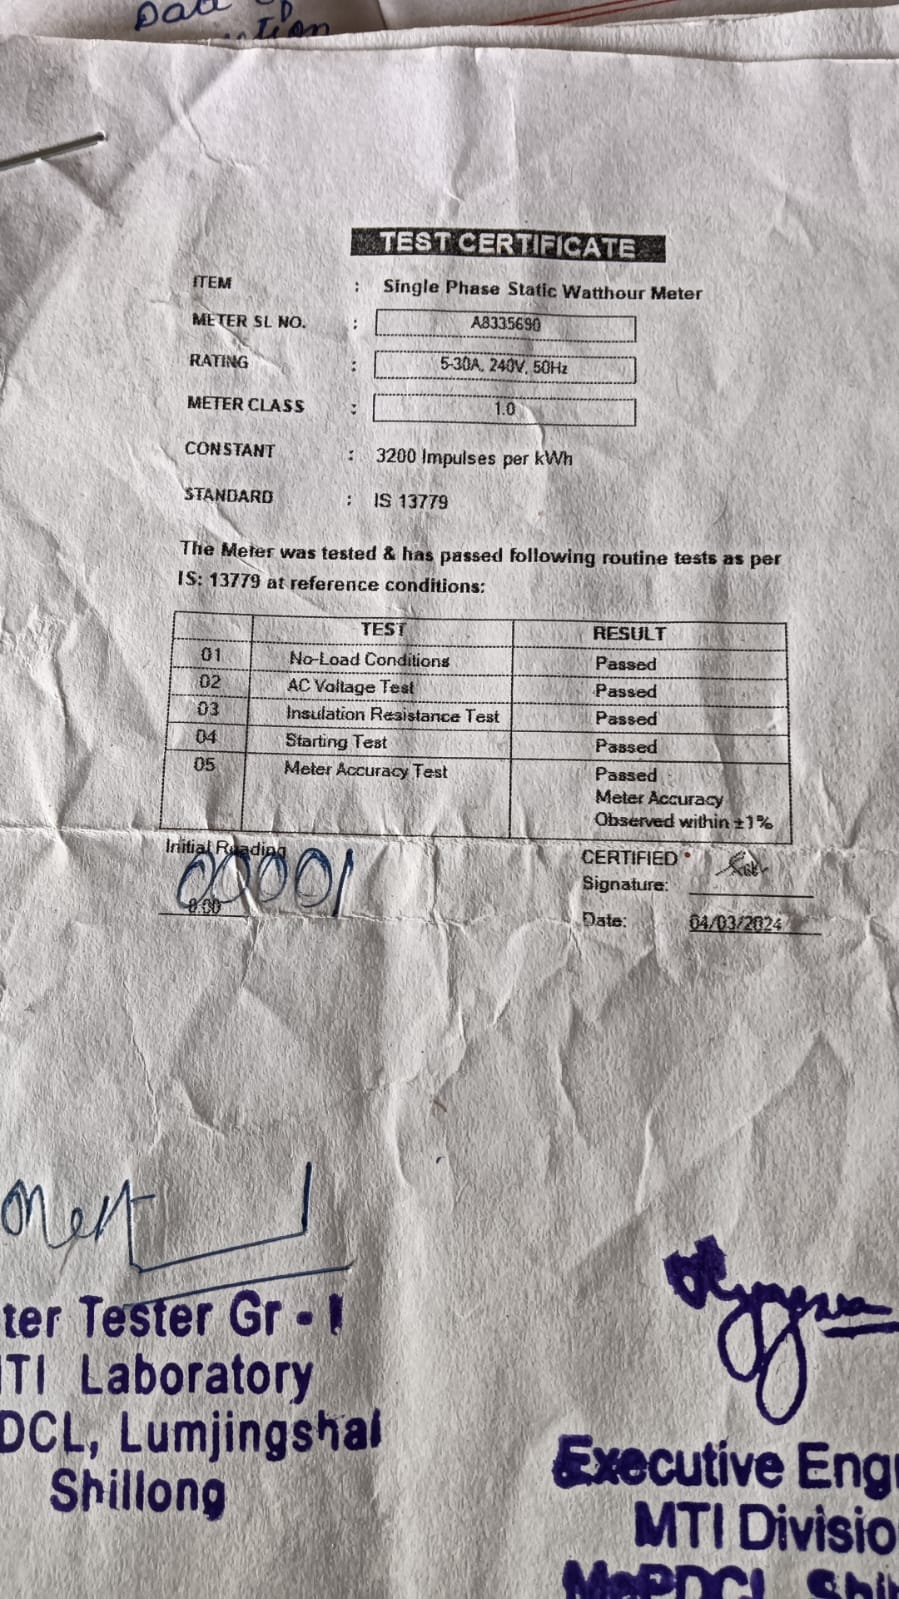 Date of
TEST CERTIFICATE
ITEM : Single Phase Static Watthour Meter
METER SL NO. : A8335690
RATING : 5-30A, 240V, 50Hz
METER CLASS : 1.0
CONSTANT : 3200 Impulses per kWh
STANDARD : IS 13779
The Meter was tested & has passed following routine tests as per
IS: 13779 at reference conditions:
TEST RESULT
01 No-Load Conditions Passed
02 AC Voltage Test Passed
03 Insulation Resistance Test Passed
04 Starting Test Passed
05 Meter Accuracy Test Passed
Meter Accuracy
Observed within ±1%
Initial Reading
00001
0.00
CERTIFIED
Signature:
Date: 04/03/2024
ter Tester Gr - I
TI Laboratory
DCL, Lumjingshai
Shillong
Executive Eng
MTI Divisio
MePDCL, Shil